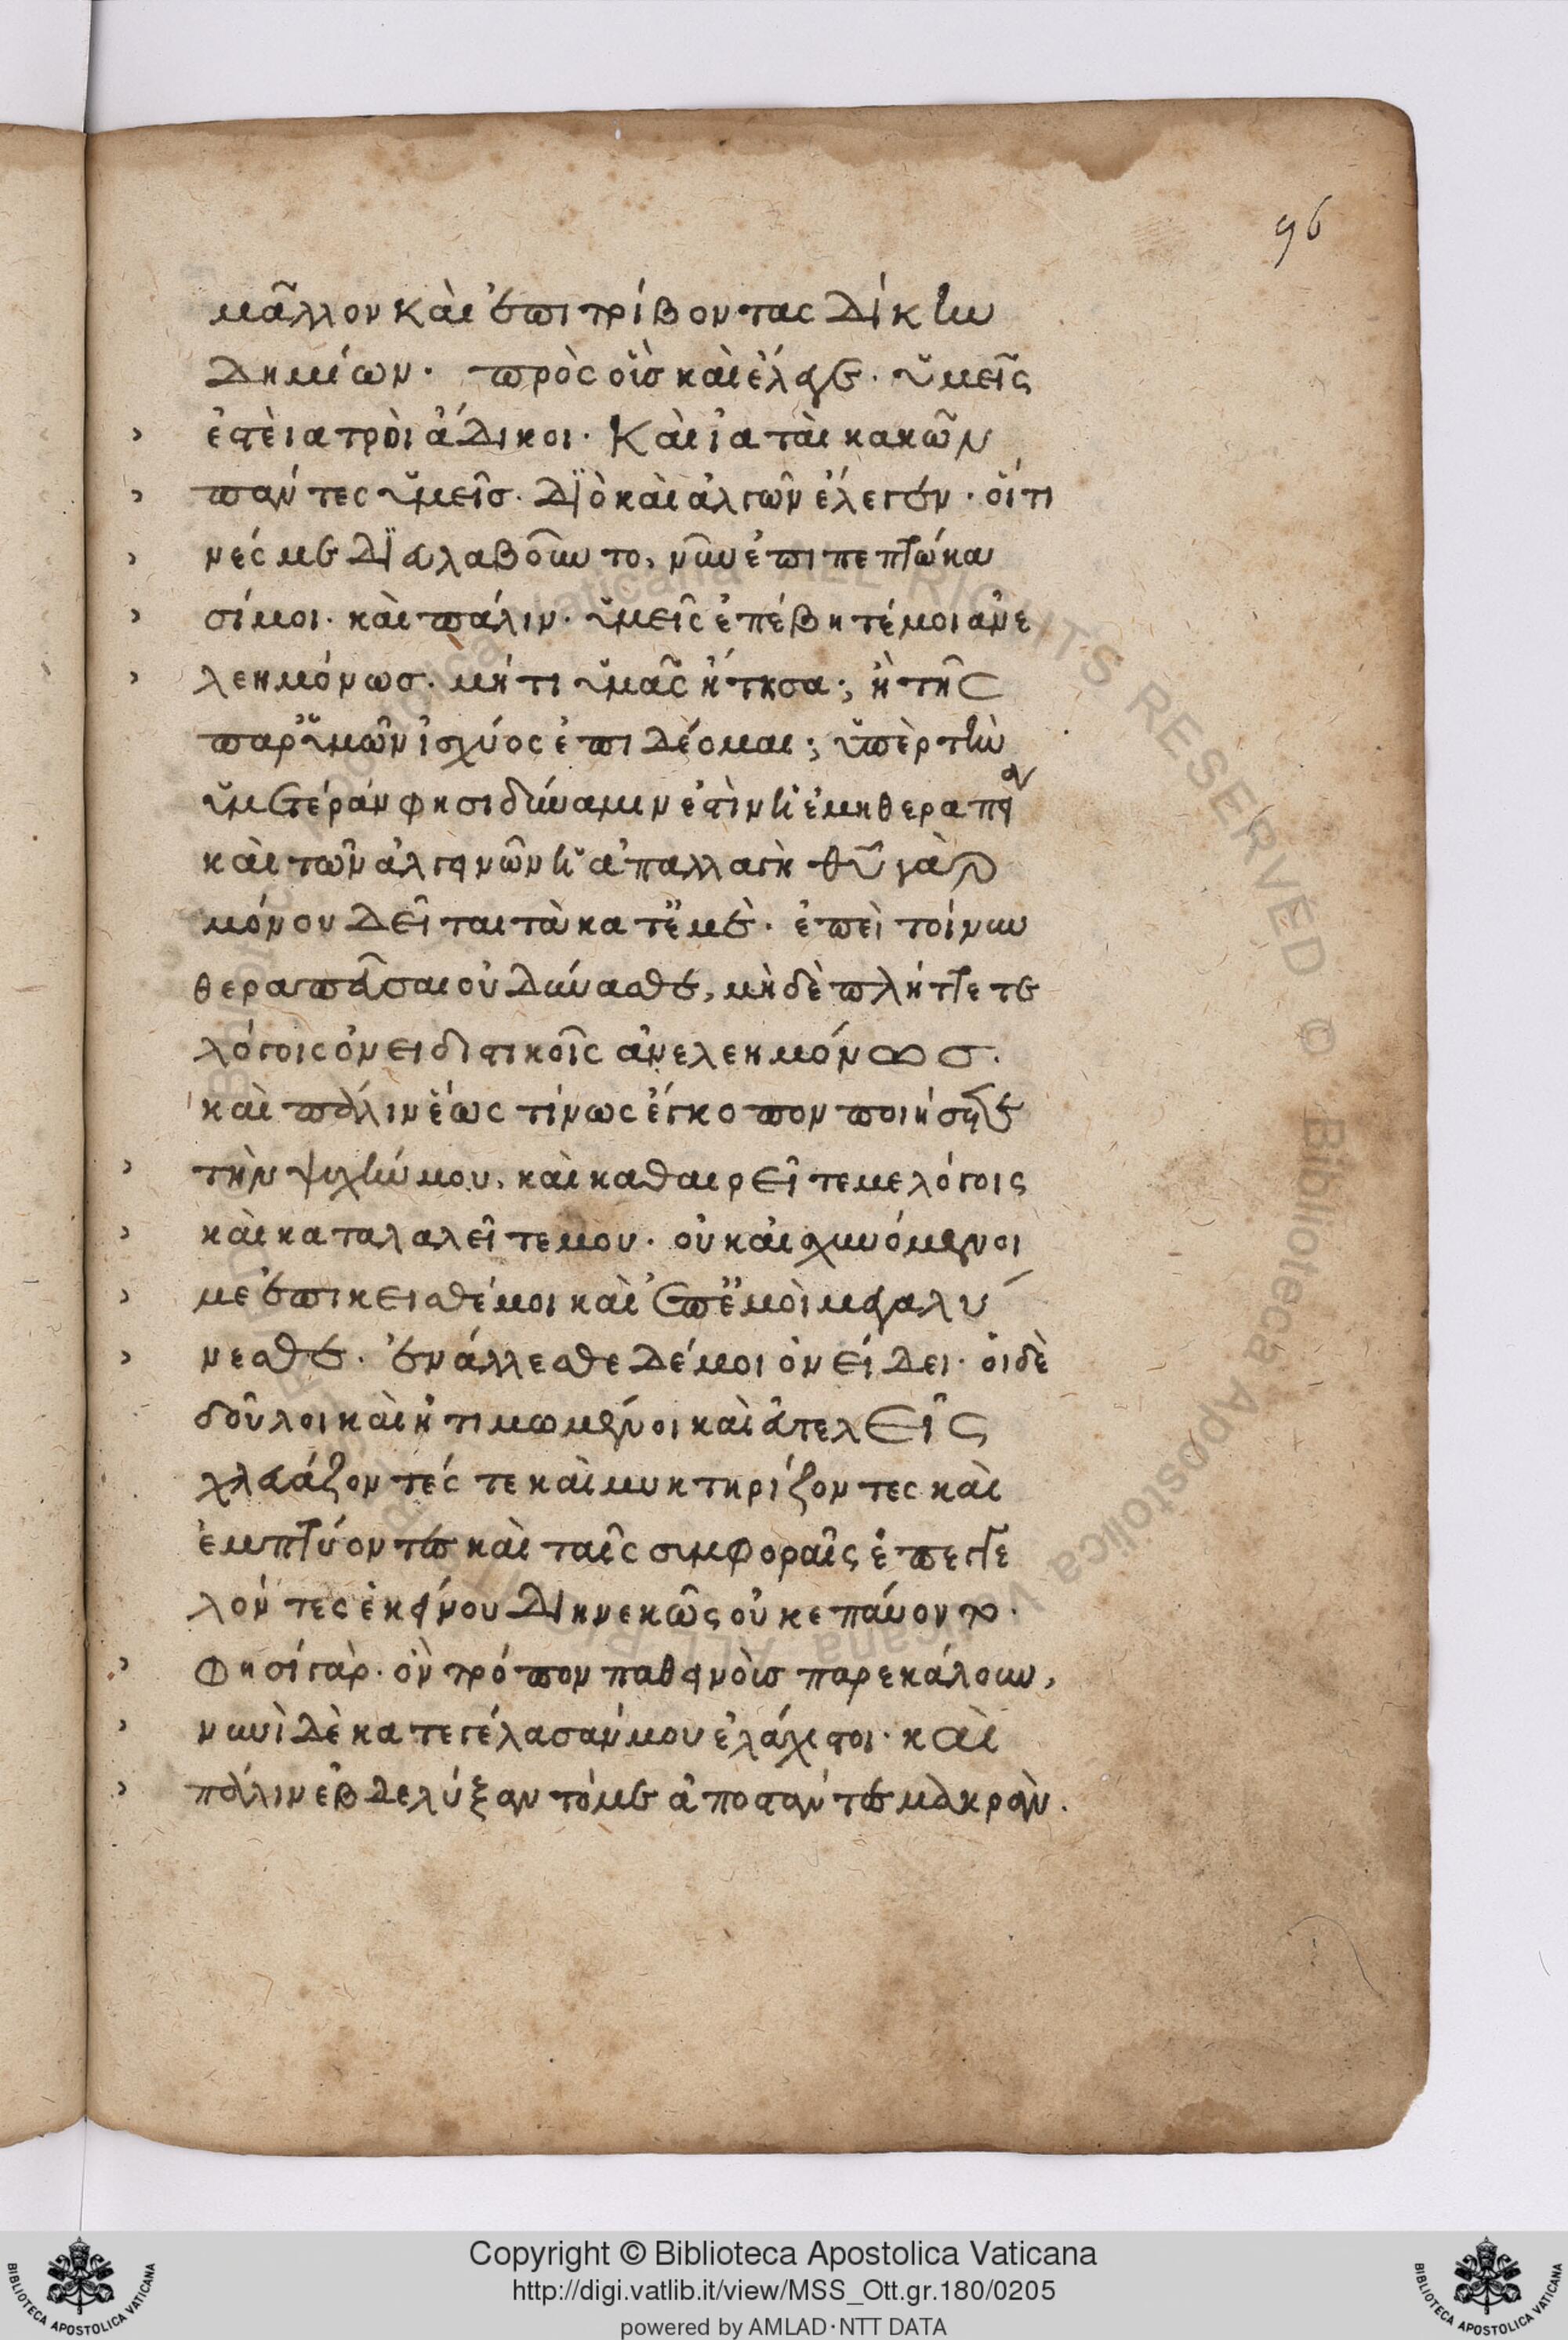 96
μᾶλλον καὶ ἐπιτρίβοντας δίκην
δημίων· πρὸς οἷς καὶ ἔλεγε· ὑμεῖς
ἐστὲ ἰατροὶ ἄδικοι· Καὶ ἰαταὶ κακῶν
πάντες ὑμεῖς· Διὸ καὶ ἀλγῶν ἔλεγεν· οἵτι
νές με διαλαβοῦντο, νῦν ἐπιπεπτώκα
σί μοι· καὶ πάλιν· ὑμεῖς ἐπέβητέ μοι ἀνε
λεημόνως· μή τι ὑμᾶς ἤτησα; ἢ τῆς
παρ' ὑμῶν ἰσχύος ἐπιδέομαι; ὑπὲρ τὴν
ὑμετέραν φησι δύναμιν ἐστὶν ἡ ἐμὴ θεραπεία
καὶ τῶν ἀλγεινῶν ἡ ἀπαλλαγὴ θῦ γὰρ
μόνον δεῖται τὰ κατ' ἐμὲ· ἐπεὶ τοίνυν
θεραπεῦσαι οὐ δύνασθε, μὴ δὲ πλήττετε
λόγοις ὀνειδιστικοῖς ἀνελεημόνως.
καὶ πάλιν ἕως τίνως ἔγκοπον ποιήσετε
τὴν ψυχήν μου, καὶ καθαιρεῖτε με λόγοις
καὶ καταλαλεῖτε μου· οὐκ αἰσχυνόμενοι
με ἐπίκεισθέ μοι καὶ ἐπ' ἐμοὶ μεγαλύ
νεσθε· ἐνάλλεσθε δέ μοι ὀνείδει· οἱ δὲ
δοῦλοι καὶ ἠτιμωμένοι καὶ ἀτελεῖς
χλευάζοντές τε καὶ μυκτηρίζοντες καὶ
ἐμπτύοντες καὶ ταῖς συμφοραῖς ἐπεγγε
λόντες ἐκείνου διηνεκῶς οὐκ ἐπαύοντο·
Φησί γὰρ· ὃν τρόπον παθεινοῖς παρεκάλουν,
νυνὶ δὲ κατεγέλασάν μου ἐλάχιστοι· καὶ
πάλιν ἐβδελύξαντό με ἀποστάντες μακράν.
Copyright © Biblioteca Apostolica Vaticana
http://digi.vatlib.it/view/MSS_Ott.gr.180/0205
powered by AMLAD·NTT DATA